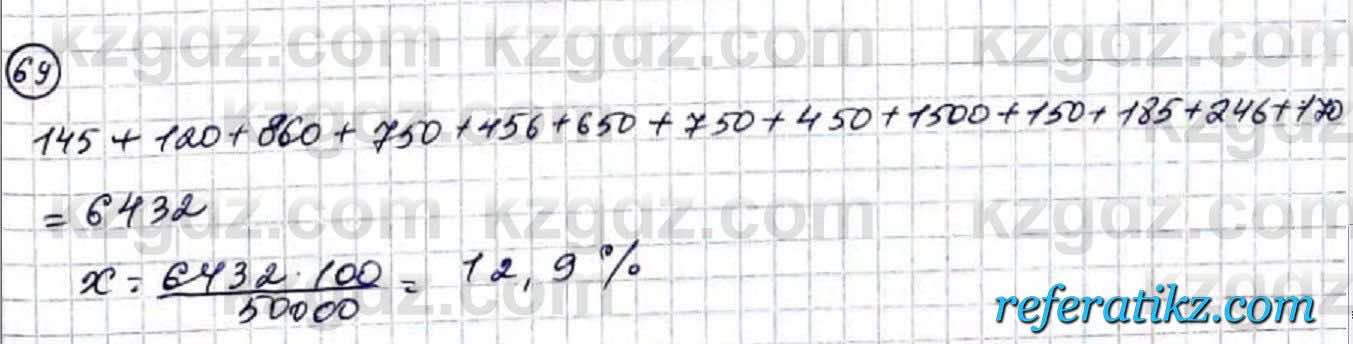 69
145 + 120 + 860 + 750 + 456 + 650 + 750 + 450 + 1500 + 150 + 185 + 246 + 170
= 6432
x = 6432 · 100 / 50000 = 12,9 %
kzgdz.com kzgdz.com kzgdz.com
kzgdz.com kzgdz.com
kzgdz.com kzgdz.com kzgdz.com
kzgdz.com
referatikz.com